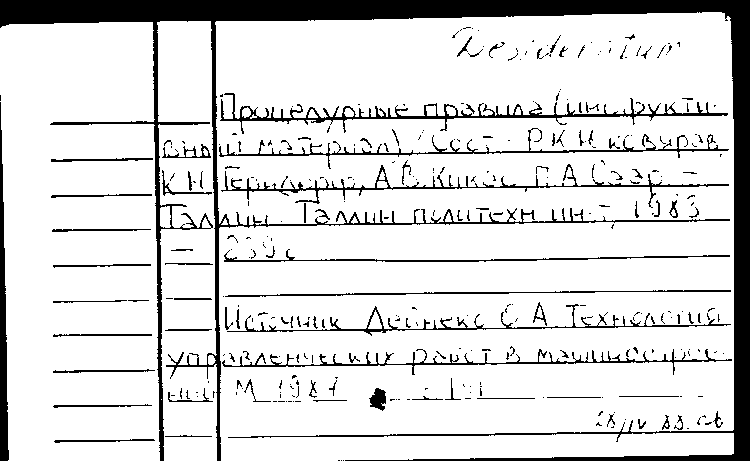 Desideratum
Процедурные правила (инструкти-
вный материал) / Сост.
К.Н. А.В. Кикас, Г.А. Саар. –
Таллин: Таллин. политехн. ин-т, 1983
– 239 с
Источник Дейнеко О.А. Технология
управленческих работ в машинострое-
нии М 1981